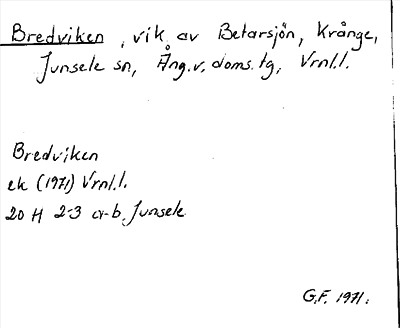 Bredviken, vik av Betarsjön, Krånge,
Junsele sn, Ång.v. doms. tg, Vrnl.l.
Bredviken
ek (1971) Vrnl.l.
20 H 2-3 a-b. Junsele
G.F. 1971.